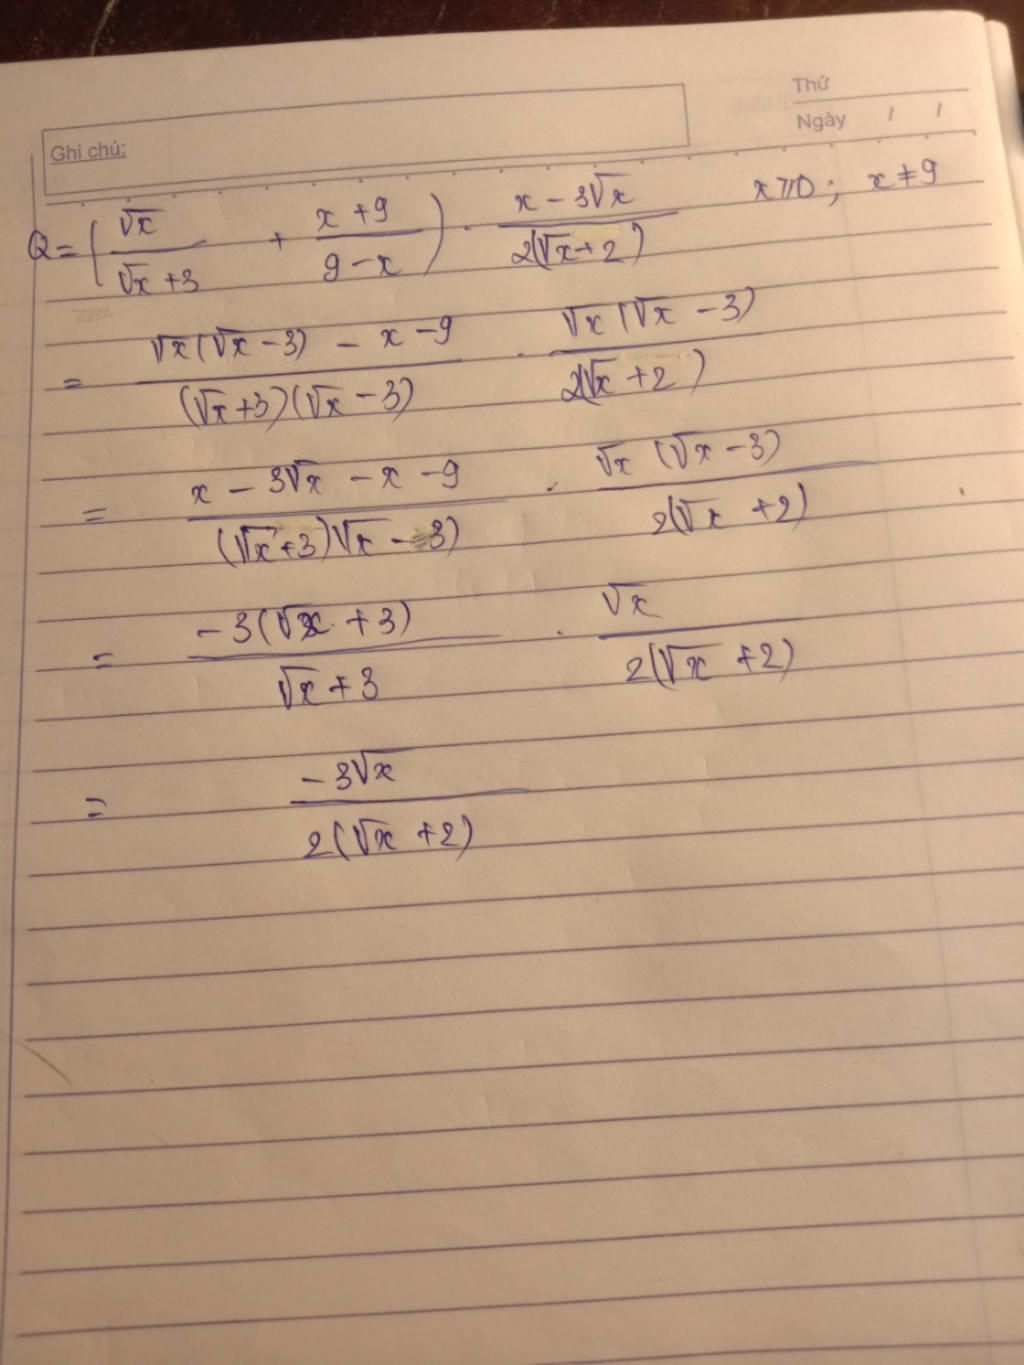 Thứ
Ghi chú:
Ngày / /
Q = (√x/(√x + 3) + (x + 9)/(9 - x)) · (x - 3√x)/(2(√x + 2)) x ≥ 0 ; x ≠ 9
= (√x(√x - 3) - x - 9)/((√x + 3)(√x - 3)) · (√x(√x - 3))/(2(√x + 2))
= (x - 3√x - x - 9)/((√x + 3)(√x - 3)) · (√x(√x - 3))/(2(√x + 2))
= (-3(√x + 3))/(√x + 3) · √x/(2(√x + 2))
= (-3√x)/(2(√x + 2))